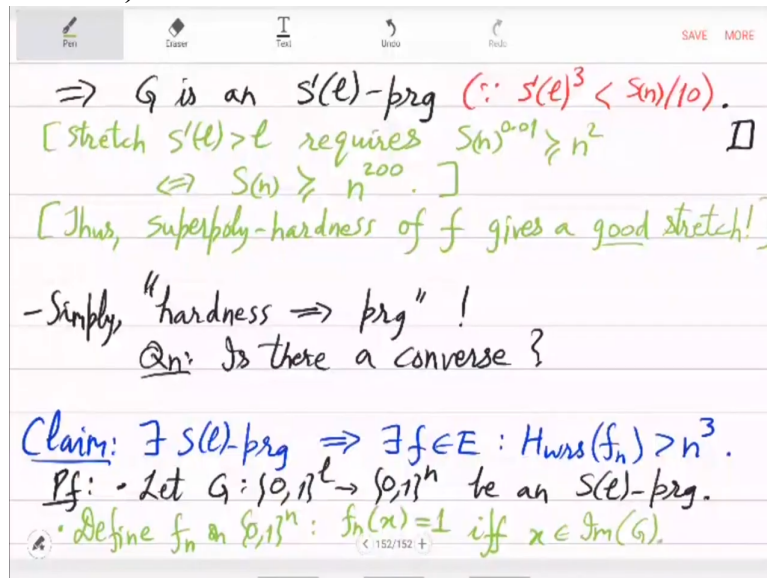 Pen Eraser Text Undo Redo SAVE MORE
⇒ G is an s'(ℓ)-prg (∵ s'(ℓ)³ < S(n)/10).
[Stretch s'(ℓ)>ℓ requires S(n)^0.01 ≥ n²
⇔ S(n) ≥ n^200. ]
[Thus, superpoly-hardness of f gives a good stretch!]
- Simply, "hardness ⇒ prg" !
Qn: Is there a converse ?
Claim: ∃ S(ℓ)-prg ⇒ ∃f∈E : Hwrs(fn) > n³.
Pf: • Let G : {0,1}^ℓ → {0,1}^n be an S(ℓ)-prg.
• Define fn on {0,1}^n : fn(x)=1 iff x ∈ Im(G).
< 152/152 +